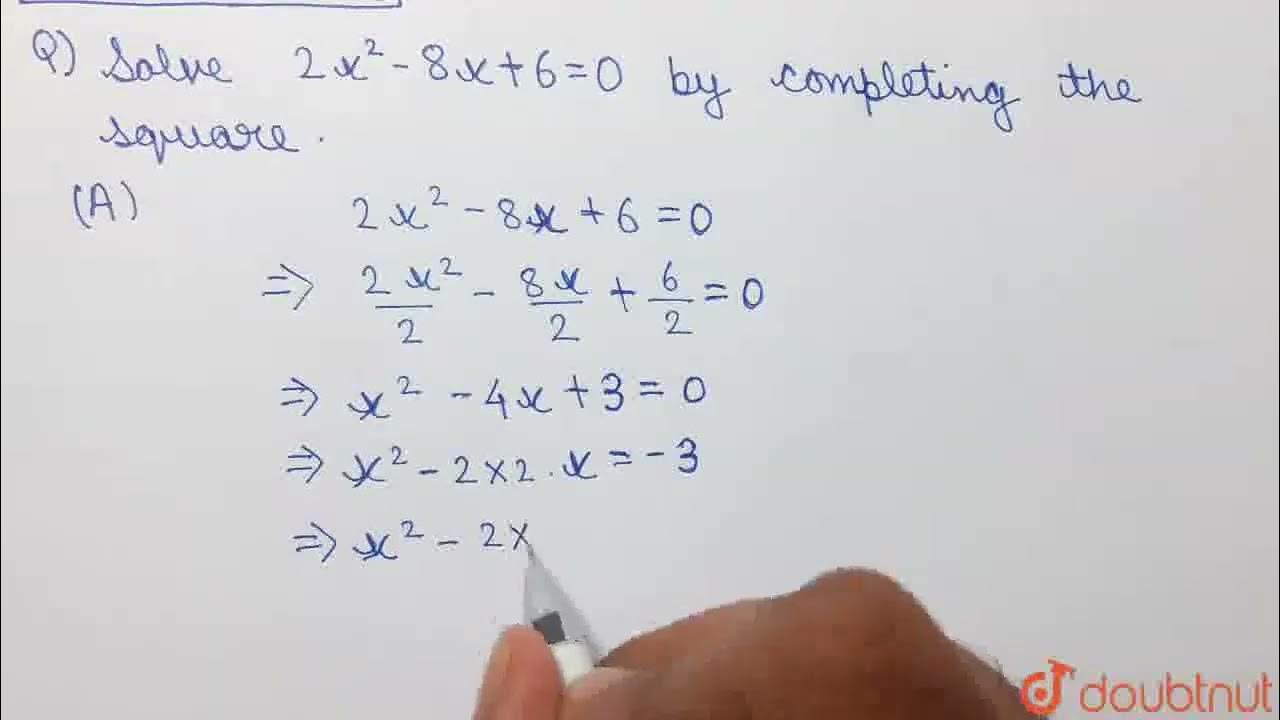 Q) Solve 2x² - 8x + 6 = 0 by completing the
square.
(A)
2x² - 8x + 6 = 0
⇒ 2x²/2 - 8x/2 + 6/2 = 0
⇒ x² - 4x + 3 = 0
⇒ x² - 2×2.x = -3
⇒ x² - 2×
doubtnut